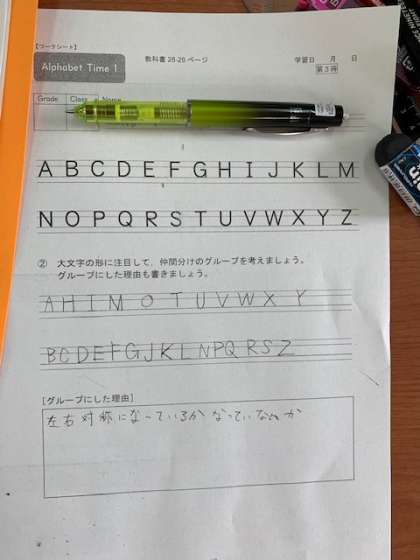 【ワークシート】
Alphabet Time 1
教科書 26-28 ページ
学習日　　月　　日
第3時
Grade Class Name
A B C D E F G H I J K L M
N O P Q R S T U V W X Y Z
② 大文字の形に注目して，仲間分けのグループを考えましょう。
グループにした理由も書きましょう。
A H I M O T U V W X Y
B C D E F G J K L N P Q R S Z
[グループにした理由]
左右対称になっているか なっていないか